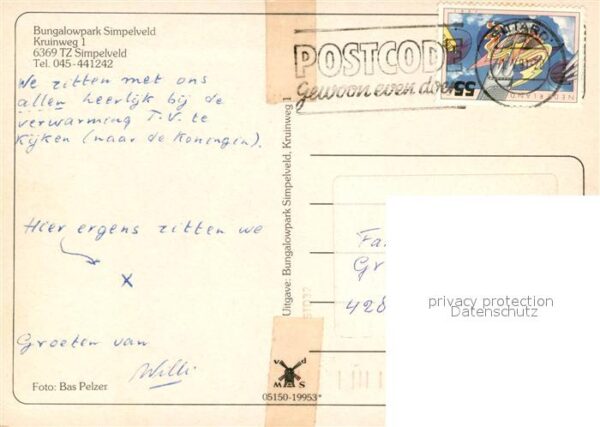 Bungalowpark Simpelveld
Kruinweg 1
6369 TZ Simpelveld
Tel. 045-441242
We zitten met ons
allen heerlijk bij de
verwarming T.V. te
kijken (naar de Koningin).
Hier ergens zitten we
x
Groeten van
Willi
Foto: Bas Pelzer
Uitgave: Bungalowpark Simpelveld, Kruinweg 1
05150-19953*
POSTCODE
gewoon even doen
55
NEDERLAND
Fa
Gr
428
privacy protection
Datenschutz